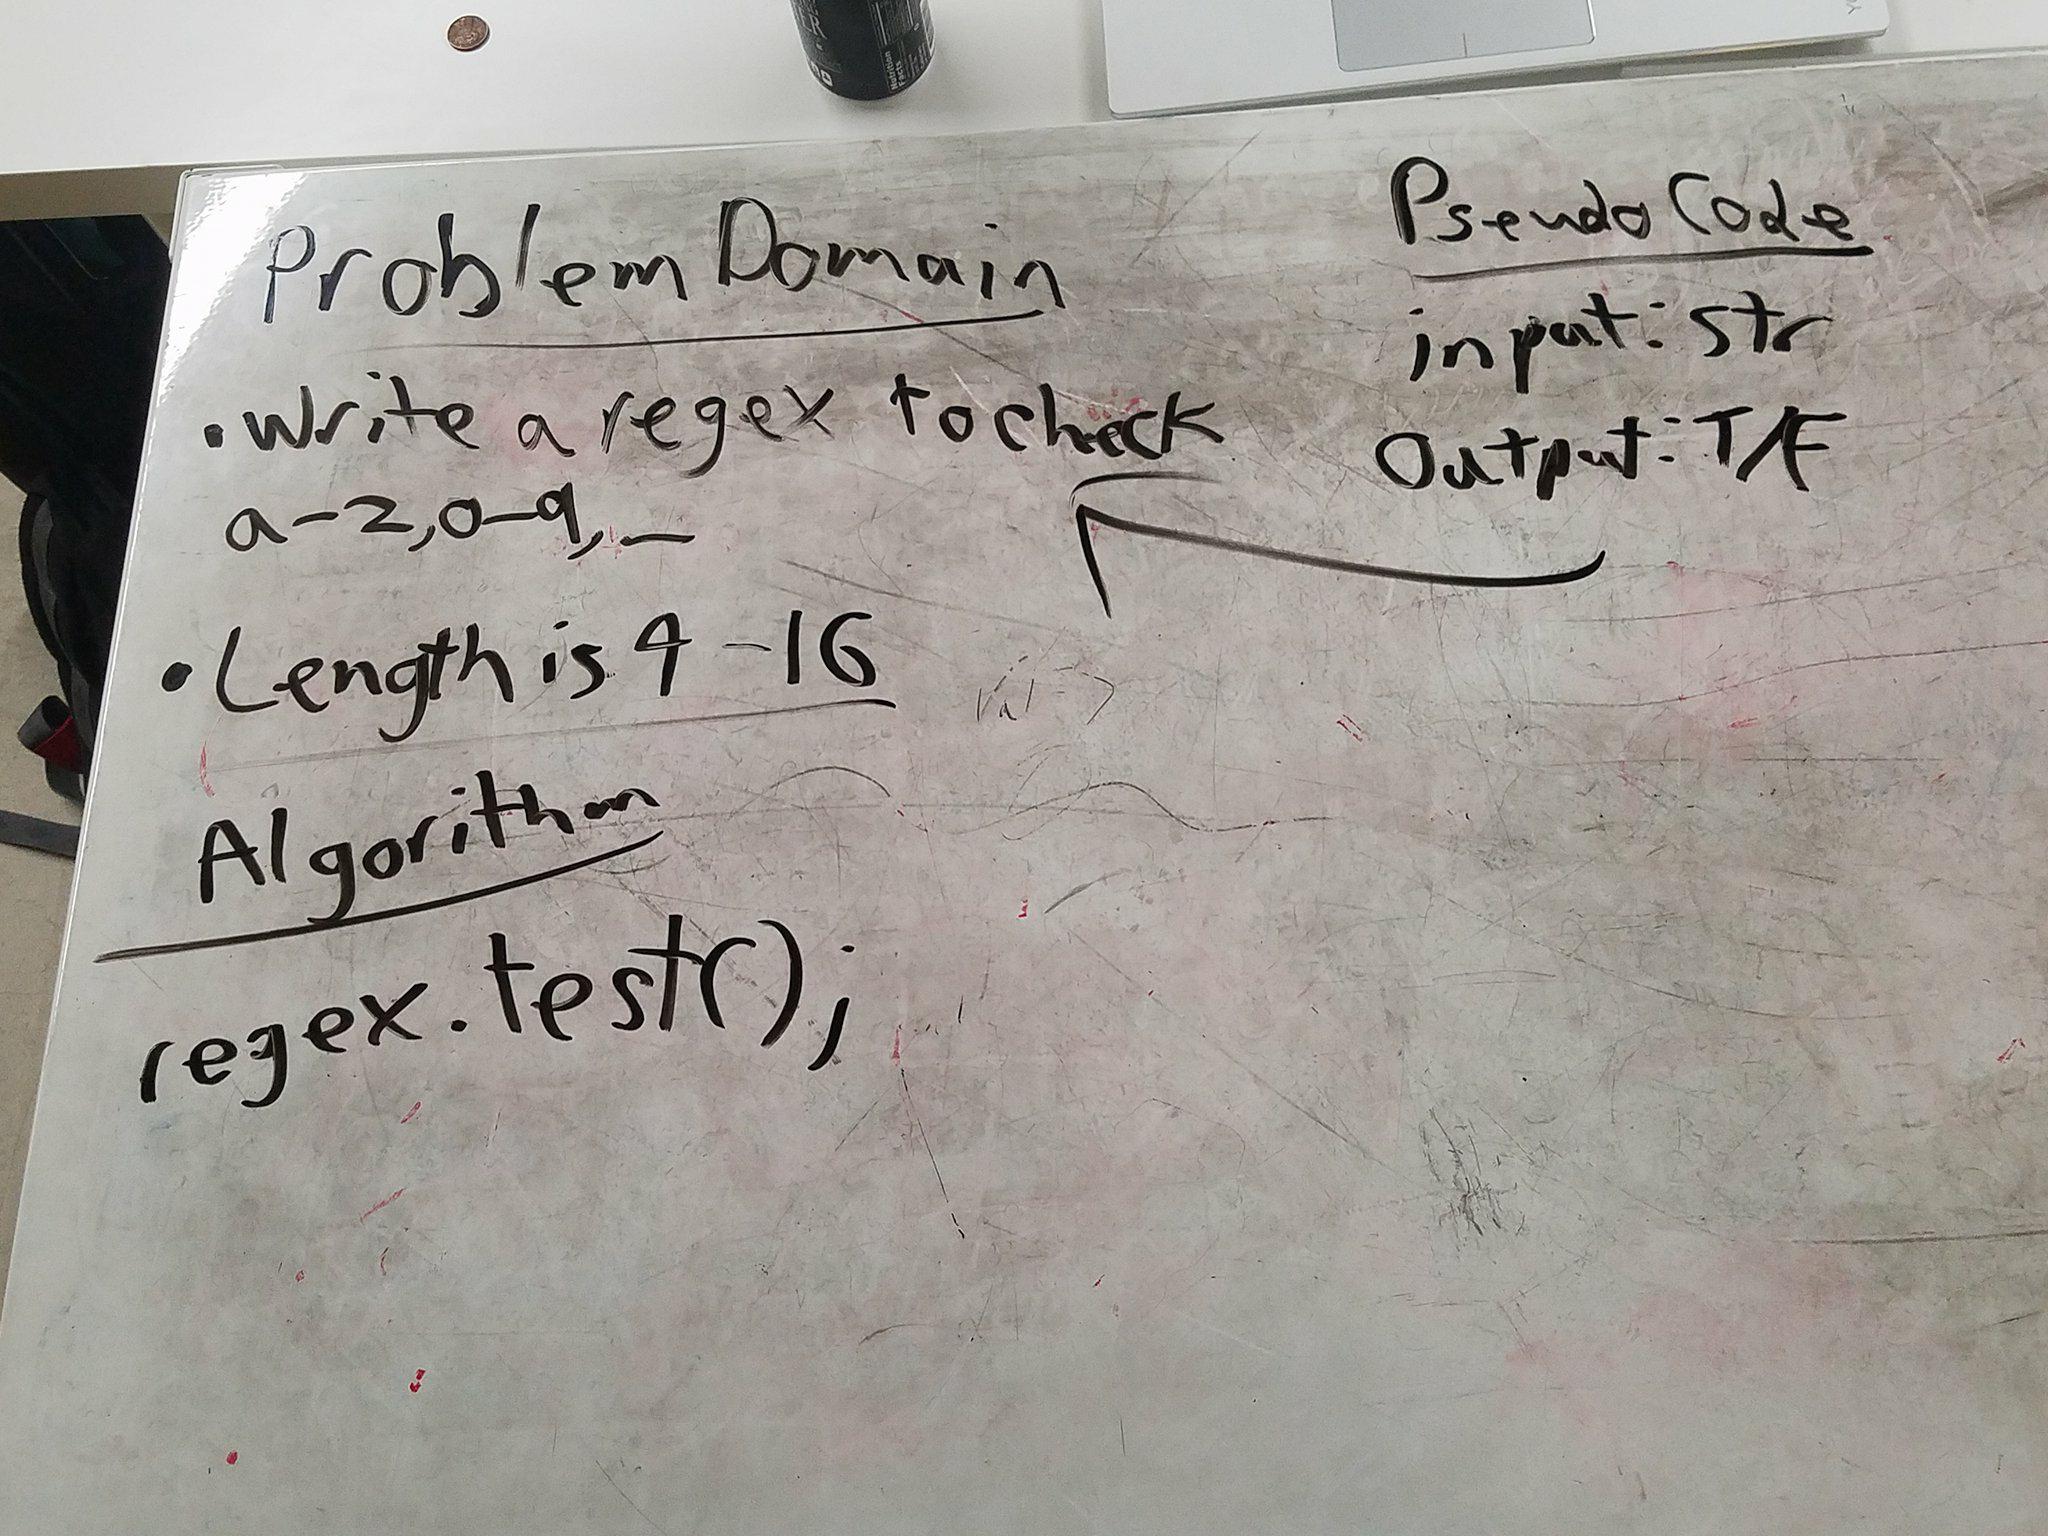 Problem Domain
• Write a regex to check
a-z,0-9,_
• Length is 4-16
Algorithm
regex.test();
Pseudo Code
input: str
Output: T/F
Nutrition
Facts